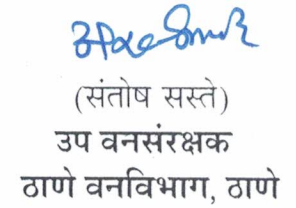 (संतोष सस्ते)
उप वनसंरक्षक
ठाणे वनविभाग, ठाणे